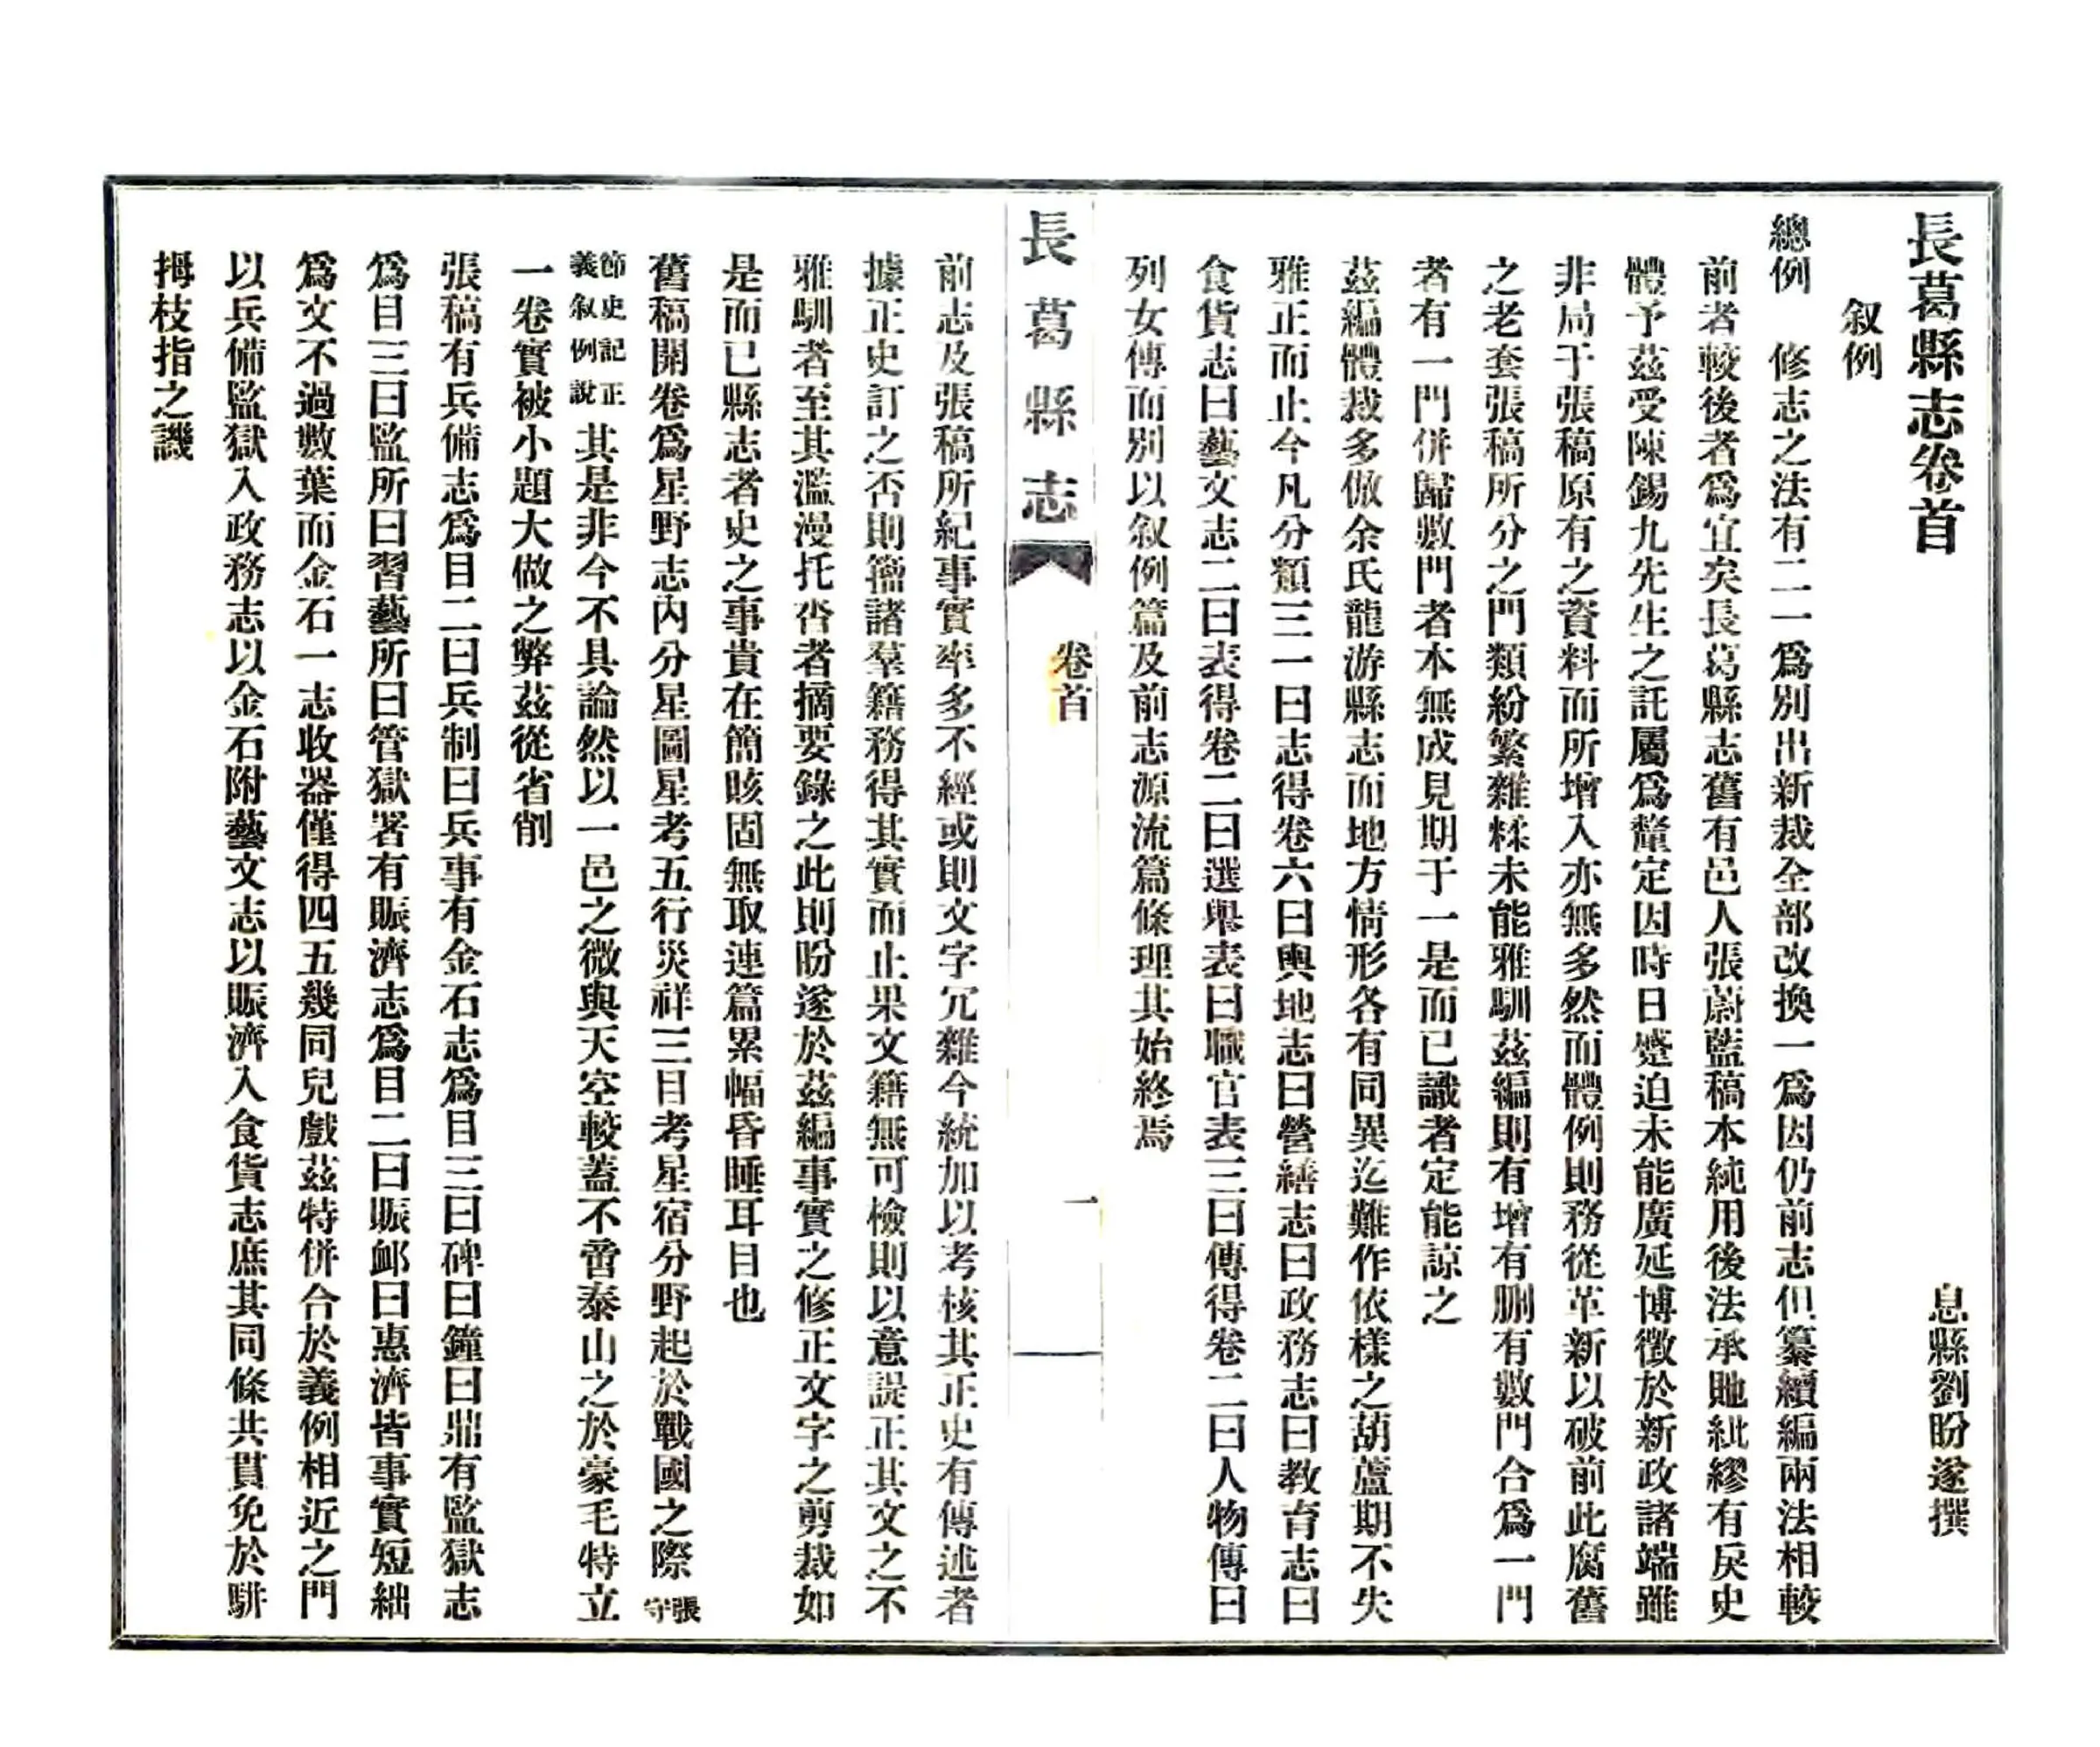 長葛縣志卷首
息縣劉盼遂撰
叙例
總例　修志之法有二一爲別出新裁全部改換一爲因仍前志但纂續編兩法相較
前者較後者爲宜矣長葛縣志舊有邑人張蔚藍稿本純用後法承訑紕繆有戾史
體予茲受陳錫九先生之託屬爲釐定因時日蹙迫未能廣延博徵於新政諸端雖
非局于張稿原有之資料而所增入亦無多然而體例則務從革新以破前此腐舊
之老套張稿所分之門類紛繁雜糅未能雅馴茲編則有增有刪有數門合爲一門
者有一門併歸數門者本無成見期于一是而已識者定能諒之
茲編體裁多倣余氏龍游縣志而地方情形各有同異迄難作依樣之葫蘆期不失
雅正而止今凡分類三一曰志得卷六曰輿地志曰營繕志曰政務志曰教育志曰
食貨志曰藝文志二曰表得卷二曰選舉表曰職官表三曰傳得卷二曰人物傳曰
列女傳而別以叙例篇及前志源流篇條理其始終焉
長葛縣志
卷首
一
前志及張稿所紀事實率多不經或則文字冗雜今統加以考核其正史有傳述者
據正史訂之否則籀諸羣籍務得其實而止果文籍無可檢則以意諟正其文之不
雅馴者至其濫漫托沓者摘要錄之此則盼遂於茲編事實之修正文字之剪裁如
是而已縣志者史之事貴在簡晐固無取連篇累幅昏睡耳目也
舊稿開卷爲星野志內分星圖星考五行災祥三目考星宿分野起於戰國之際張守
節史記正義叙例說其是非今不具論然以一邑之微與天空較蓋不啻泰山之於豪毛特立
一卷實被小題大做之弊茲從省削
張稿有兵備志爲目二曰兵制曰兵事有金石志爲目三曰碑曰鐘曰鼎有監獄志
爲目三曰監所曰習藝所曰管獄署有賑濟志爲目二曰賑卹曰惠濟皆事實短絀
爲文不過數葉而金石一志收器僅得四五幾同兒戲茲特併合於義例相近之門
以兵備監獄入政務志以金石附藝文志以賑濟入食貨志庶其同條共貫免於駢
拇枝指之譏